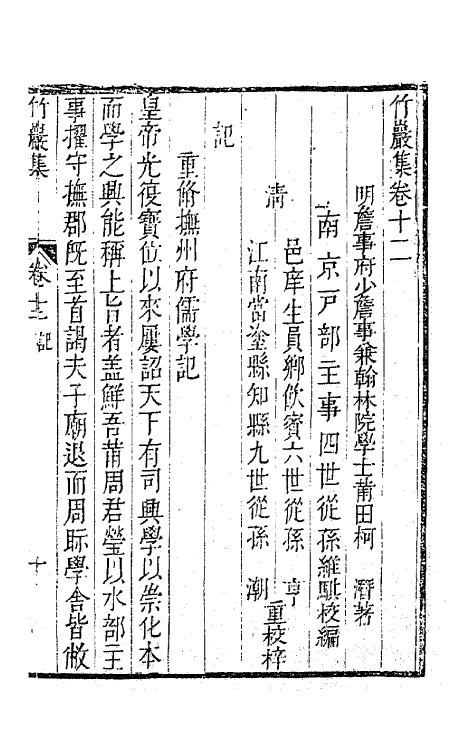 竹巖集卷十二
明詹事府少詹事兼翰林院學士莆田柯 潛著
南京戶部主事四世從孫維騏校編
清
邑庠生員鄉飲賓六世從孫 亨
江南當塗縣知縣九世從孫 潮
重校梓
記
重脩撫州府儒學記
皇帝光復寶位以來屢詔天下有司興學以崇化本
而學之興能稱上旨者蓋鮮吾莆周君瑩以水部主
事擢守撫郡既至首謁夫子廟退而周眎學舍皆敝
竹巖集 卷十二 記 十